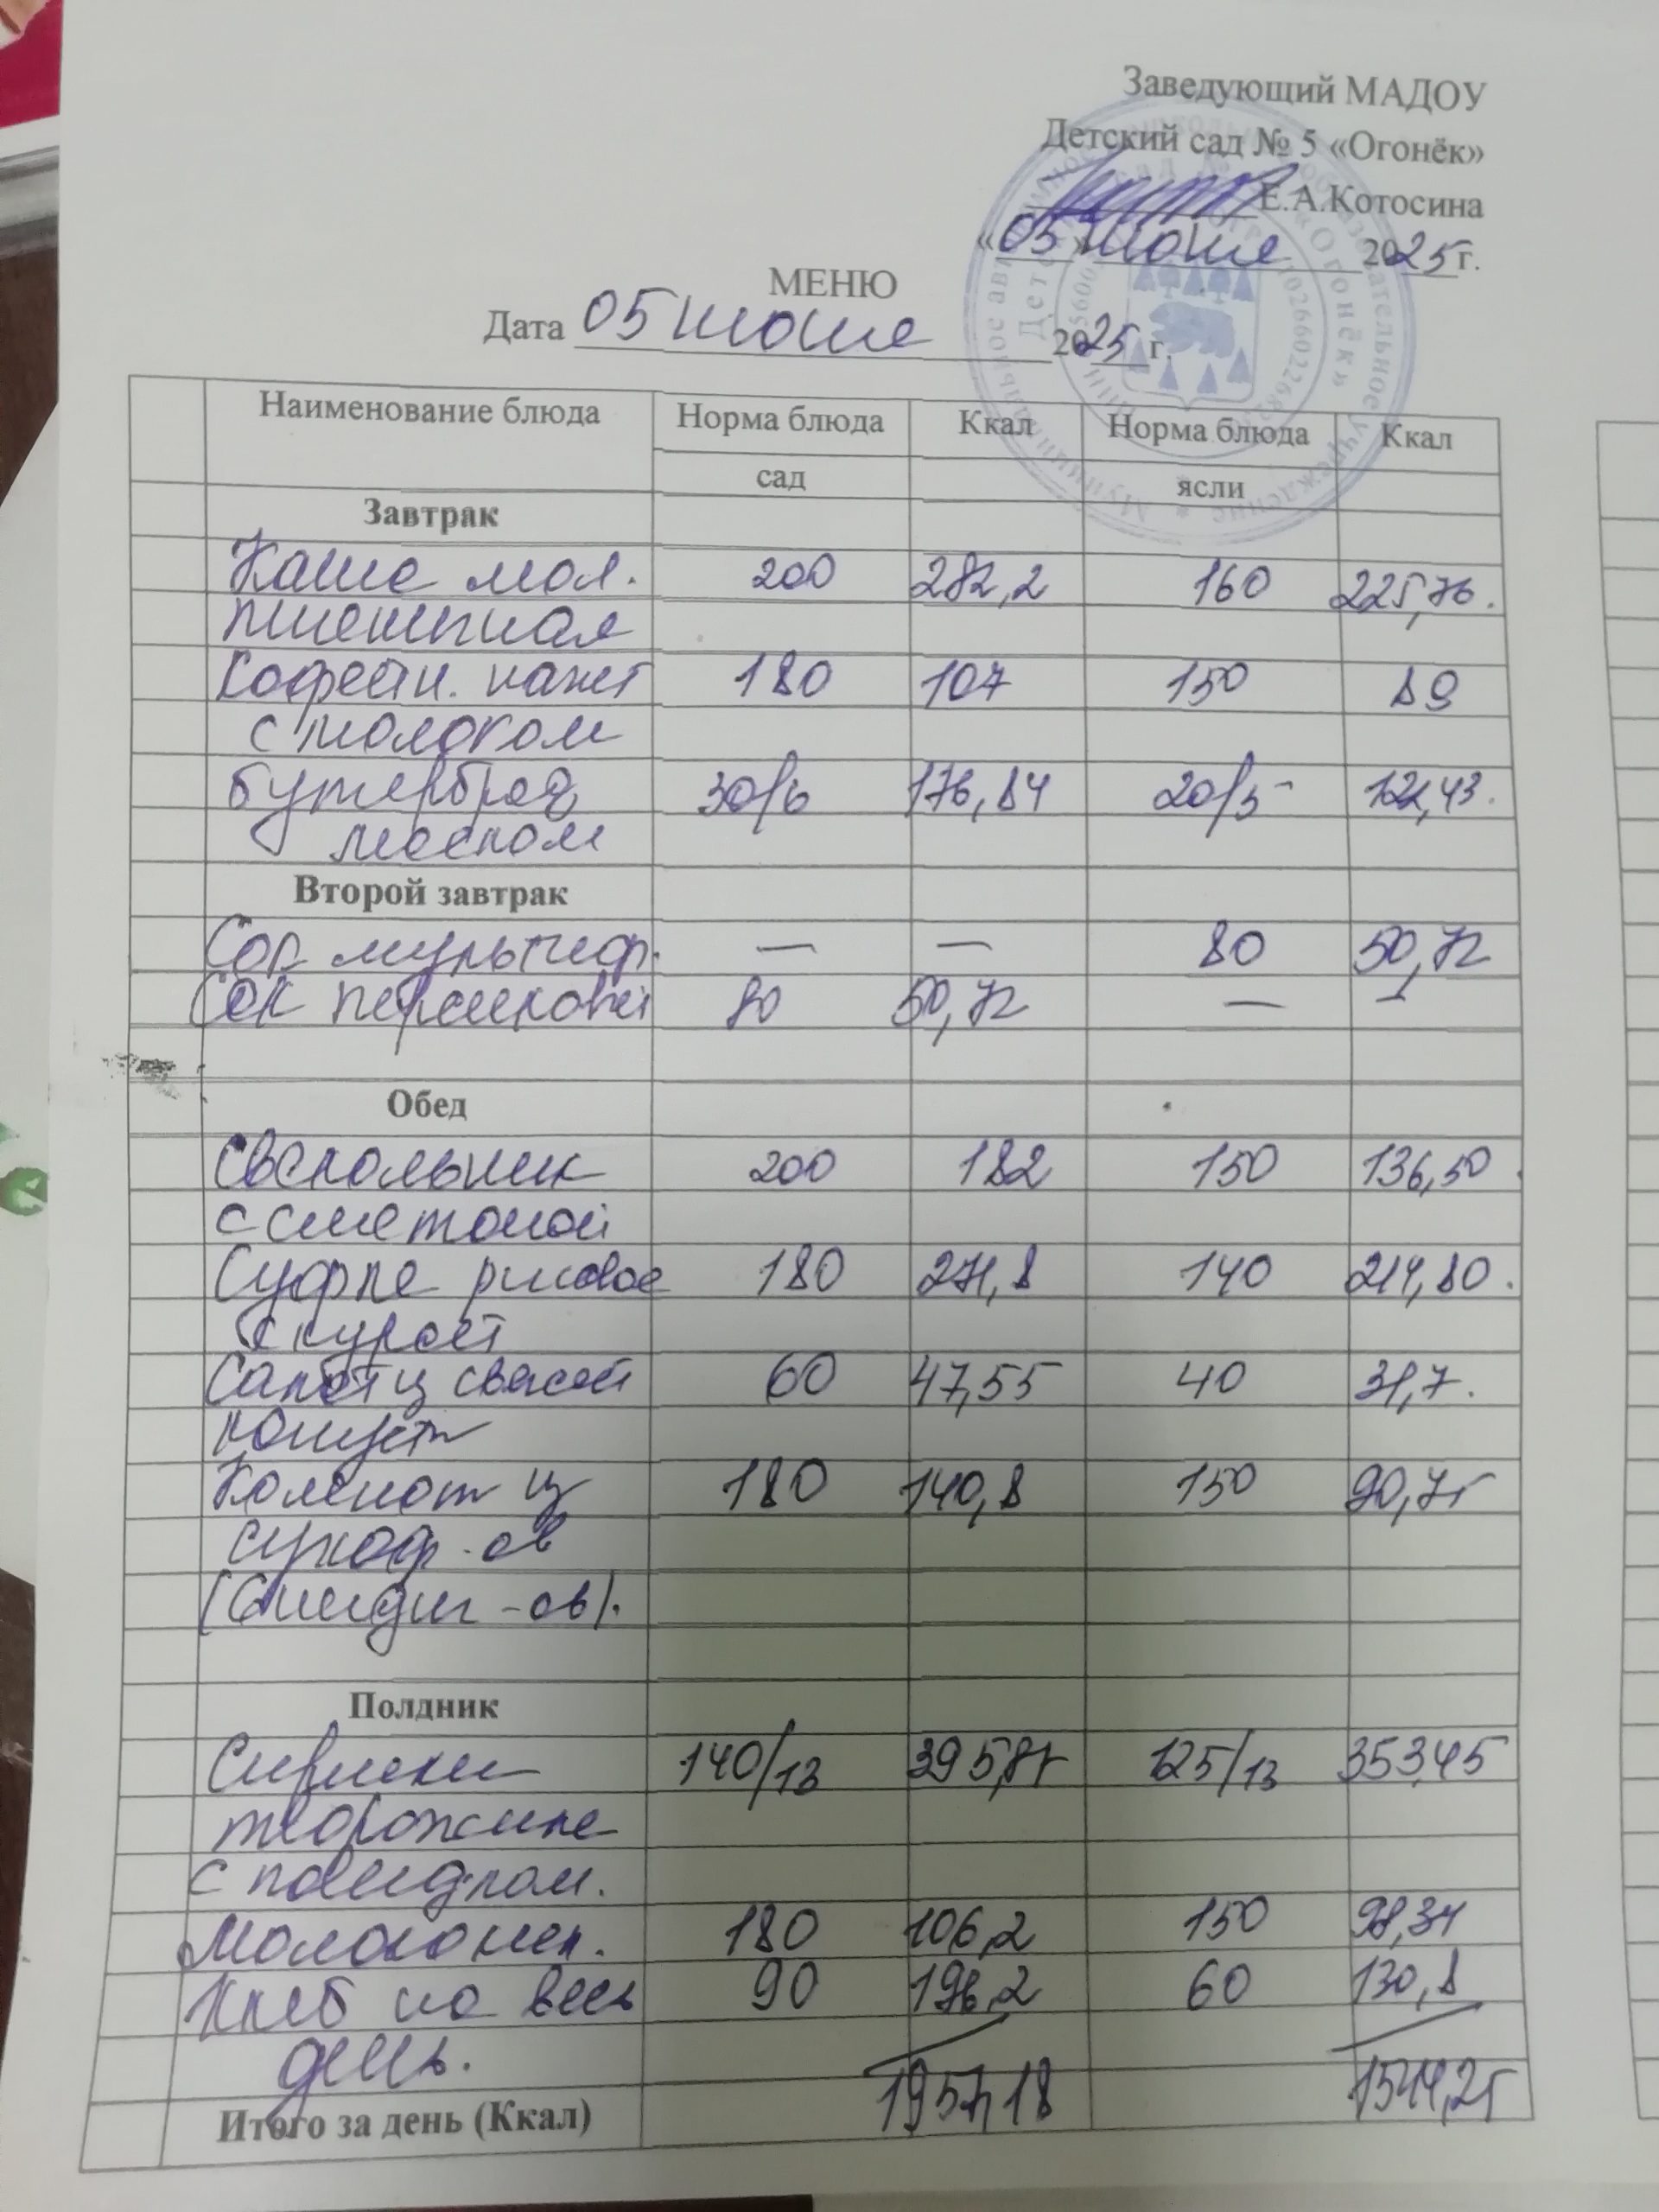 Заведующий МАДОУ
Детский сад № 5 «Огонёк»
Е.А.Котосина
«05» июня 2025 г.
МЕНЮ
Дата 05 июня 2025 г.
Наименование блюда Норма блюда Ккал Норма блюда Ккал
сад ясли
Завтрак
Каша мол. 200 282,2 160 225,76.
пшеничная
Кофейн. напит 180 107 150 89
с молоком
бутерброд 30/6 176,84 20/5
маслом
Второй завтрак
Сок мультиф. — — 80 50,72
Сок персиковый 80 50,72 — —
Обед
Свекольник 200 182 150 136,50
с сметаной
Суфле рисовое 180 271,8 140 214,80.
с курой
Салат из свежей 60 47,55 40 31,7.
капуст
Компот из 180 140,8 150 90,75
сухоф-ов
Полдник
Сырники 140/13 395,87 125/13 353,45
творожные
с повидлом.
Молоко кип. 180 106,2 150 98,34
Хлеб на весь 90 196,2 60 130,8
день.
Итого за день (Ккал) 1957,18 1544,25